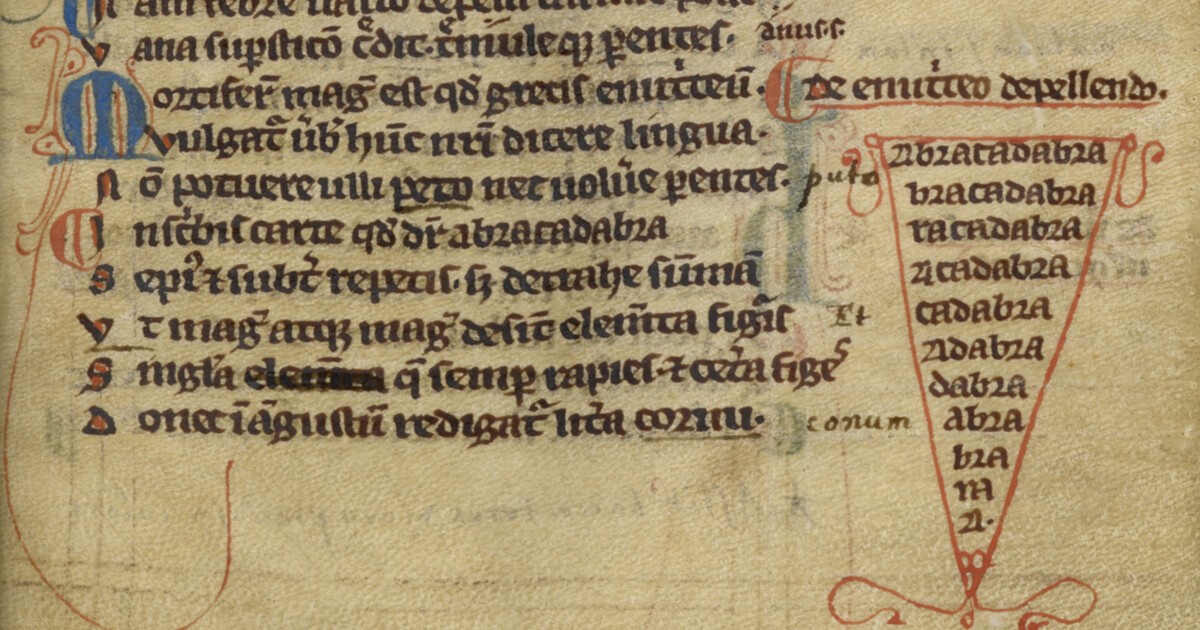 ana supsticō
anus.s.
Mortifer̄ mag̾ est qd̄ grecis emit̾teū.
De emit̾teo depellendo.
Vulgat̄ ūb̾ hūc nr̄i dicere lingua.
Nō potuere ulli peto nec uolu̾e pentes. puto
Insc̾bis carte qd̄ dr̄ abracadabra
Sepi᾽ ⁊ subt̾ repetis. sz detrahe sūmā
Vt mag̾ atqz mag̾ desit̄ elem̄ta figis Et
Singl̾a q̄ semp rapies. ⁊ cet̾a figes
Donec ī āgustū redigat̾ lit̾a cornu. conum
Abracadabra
bracadabra
racadabra
Acadabra
cadabra
Adabra
dabra
abra
bra
ra
A.